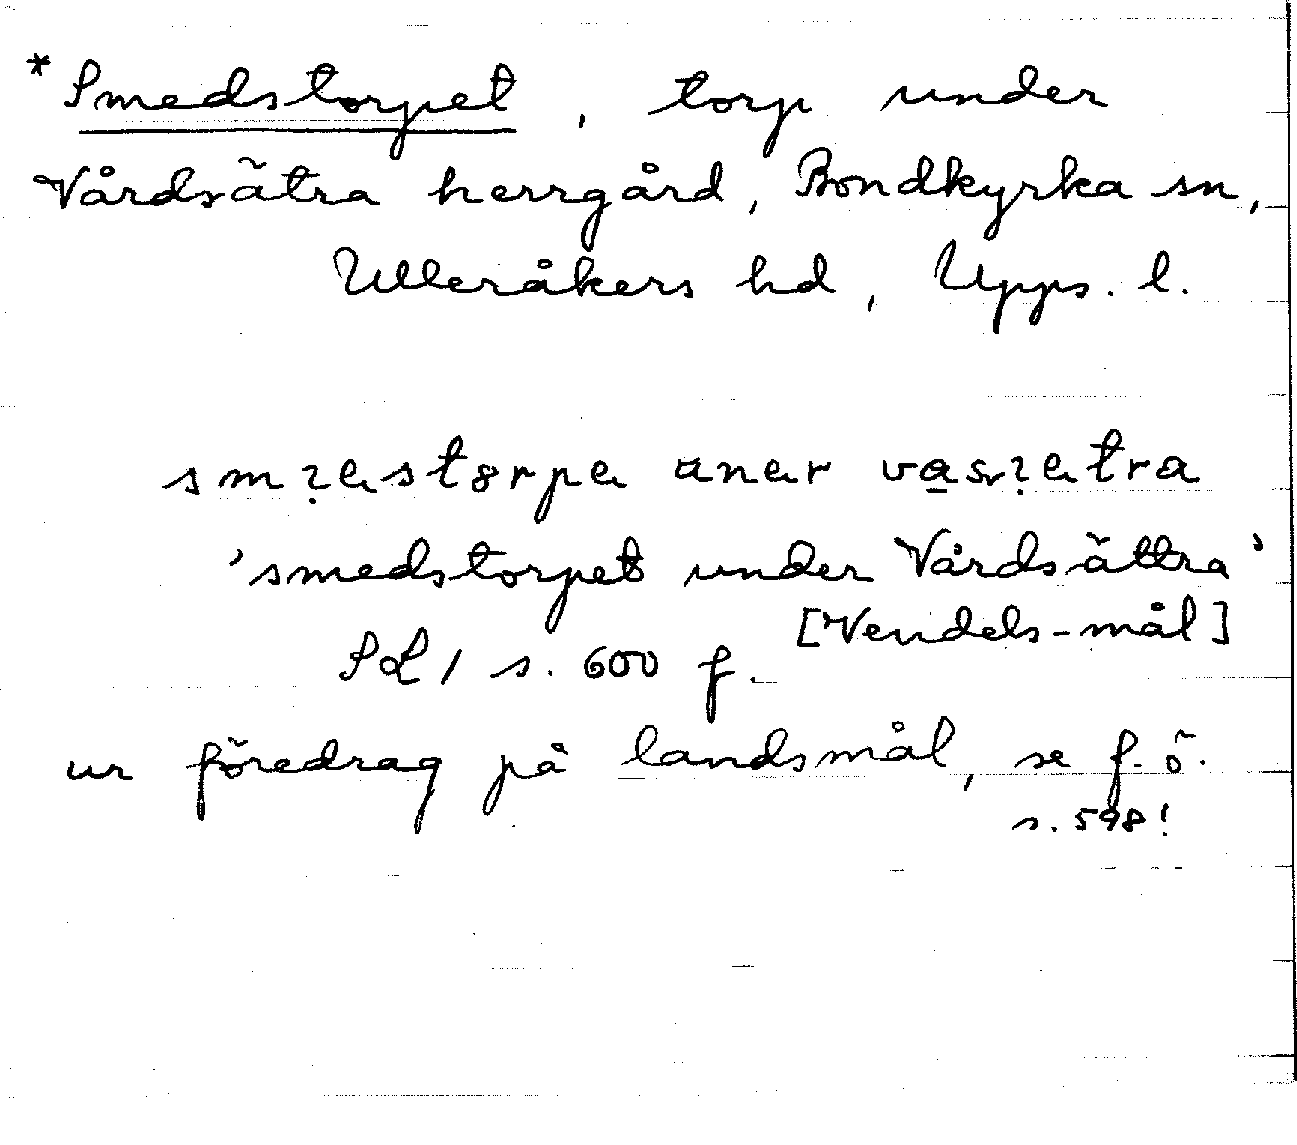 *Smedstorpet, torp under
Vårdsätra herrgård, Bondkyrka sn,
Ulleråkers hd, Upps. l.
'smedstorpet under Vårdsättra'
[Vendels-mål]
SL 1 s. 600 f.
ur föredrag på landsmål, se f. ö.
s. 598!